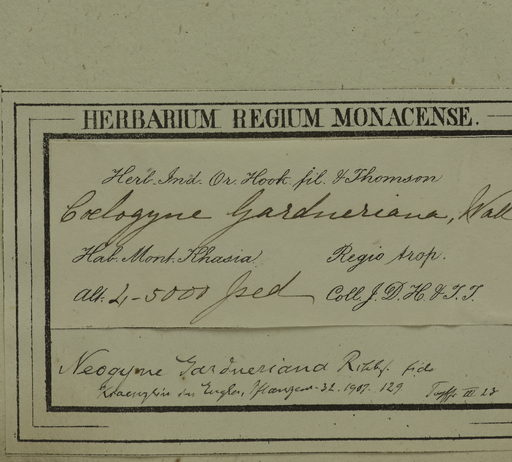 HERBARIUM REGIUM MONACENSE.
Herb. Ind. Or. Hook. fil. & Thomson
Coelogyne Gardneriana, Wall
Hab. Mont. Khasia Regio trop.
Alt. 4-5000 ped Coll. J. D. H. & T. T.
Neogyne Gardneriana Rchb f. fide
in Engler, Pflanzenr. 32. 1907. 129